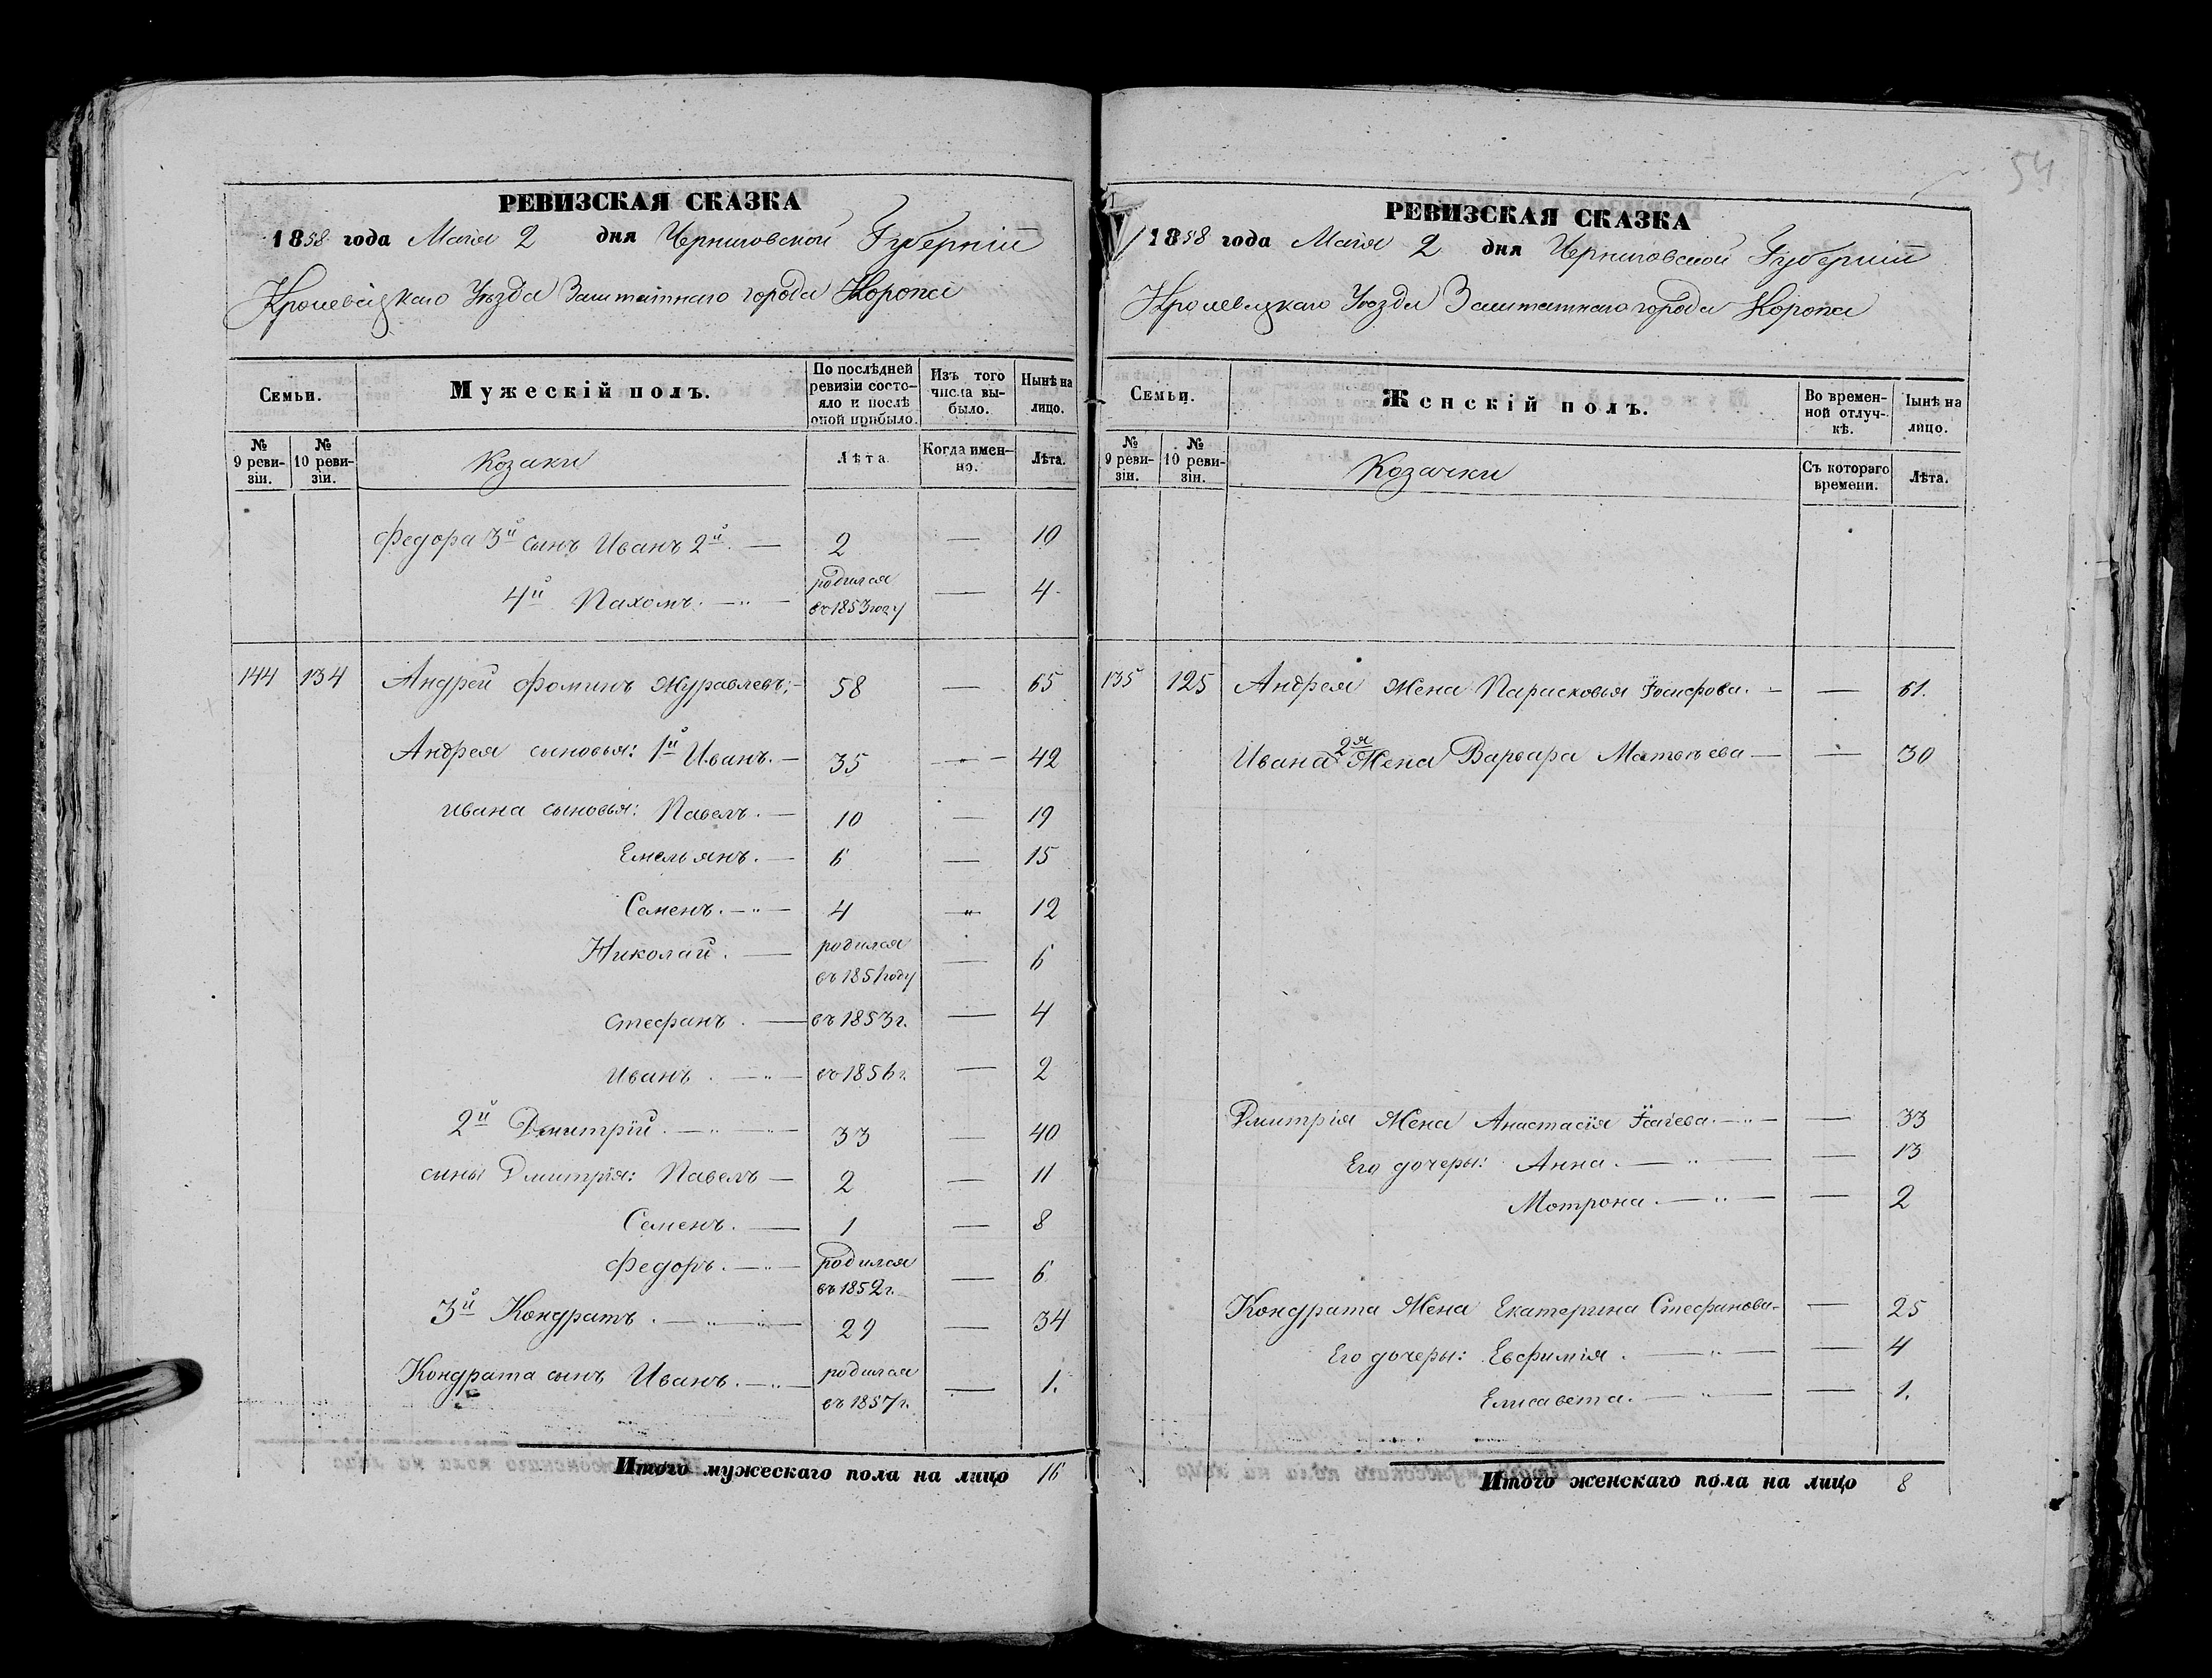 54
РЕВИЗСКАЯ СКАЗКА
1858 года Маія 2 дня Черниговской Губерніи
Кролевецкаго Уѣзда Заштатнаго города Коропа
Семьи.
Мужескій полъ.
По послѣдней ревизіи состояло и послѣ оной прибыло.
Изъ того числа выбыло.
Нынѣ на лицо.
№ 9 ревизіи.
№ 10 ревизіи.
Козаки
Лѣта
Когда именно.
Лѣта.
Федора 3й сынъ Иванъ 2й. — 2 — 10
4й Пахомъ. — „ — родился въ 1853 году — 4
144 134 Андрей Фоминъ Журавлевъ; — 58 — 65
Андрея сыновья: 1й Иванъ. — 35 — 42
Ивана сыновья: Павелъ. — 10 — 19
Емельянъ. — 6 — 15
Семенъ. — „ — 4 — 12
Николай. — родился въ 1851 году — 6
Стефанъ. — въ 1853 г. — 4
Иванъ. — „ — въ 1856 г. — 2
2й Дмитрій. — „ — 33 — 40
сыны Дмитрія: Павелъ — 2 — 11
Семенъ. — 1 — 8
Федоръ. — „ — родился въ 1852 г. — 6
3й Кондратъ. — „ — „ — 29 — 34
Кондрата сынъ Иванъ. — „ — родился въ 1857 г. — 1.
Итого мужескаго пола на лицо 16
РЕВИЗСКАЯ СКАЗКА
1858 года Маія 2 дня Черниговской Губерніи
Кролевецкаго Уѣзда Заштатнаго города Коропа
Семьи.
Женскій полъ.
Во временной отлучкѣ.
Нынѣ на лицо.
№ 9 ревизіи.
№ 10 ревизіи.
Козачки
Съ котораго времени.
Лѣта.
135 125 Андрея Жена Парасковья Іосифова. — — 61.
Ивана 2я Жена Варвара Матвѣева — — 30
Дмитрія Жена Анастасія Исаіева. — „ — — 33
Его дочеры: Анна. — „ — — 13
Мотрона. — „ — — 2
Кондрата Жена Екатерина Стефанова — — 25
Его дочеры: Евфимія. — „ — — 4
Елисавета. — „ — — 1.
Итого женскаго пола на лицо 8